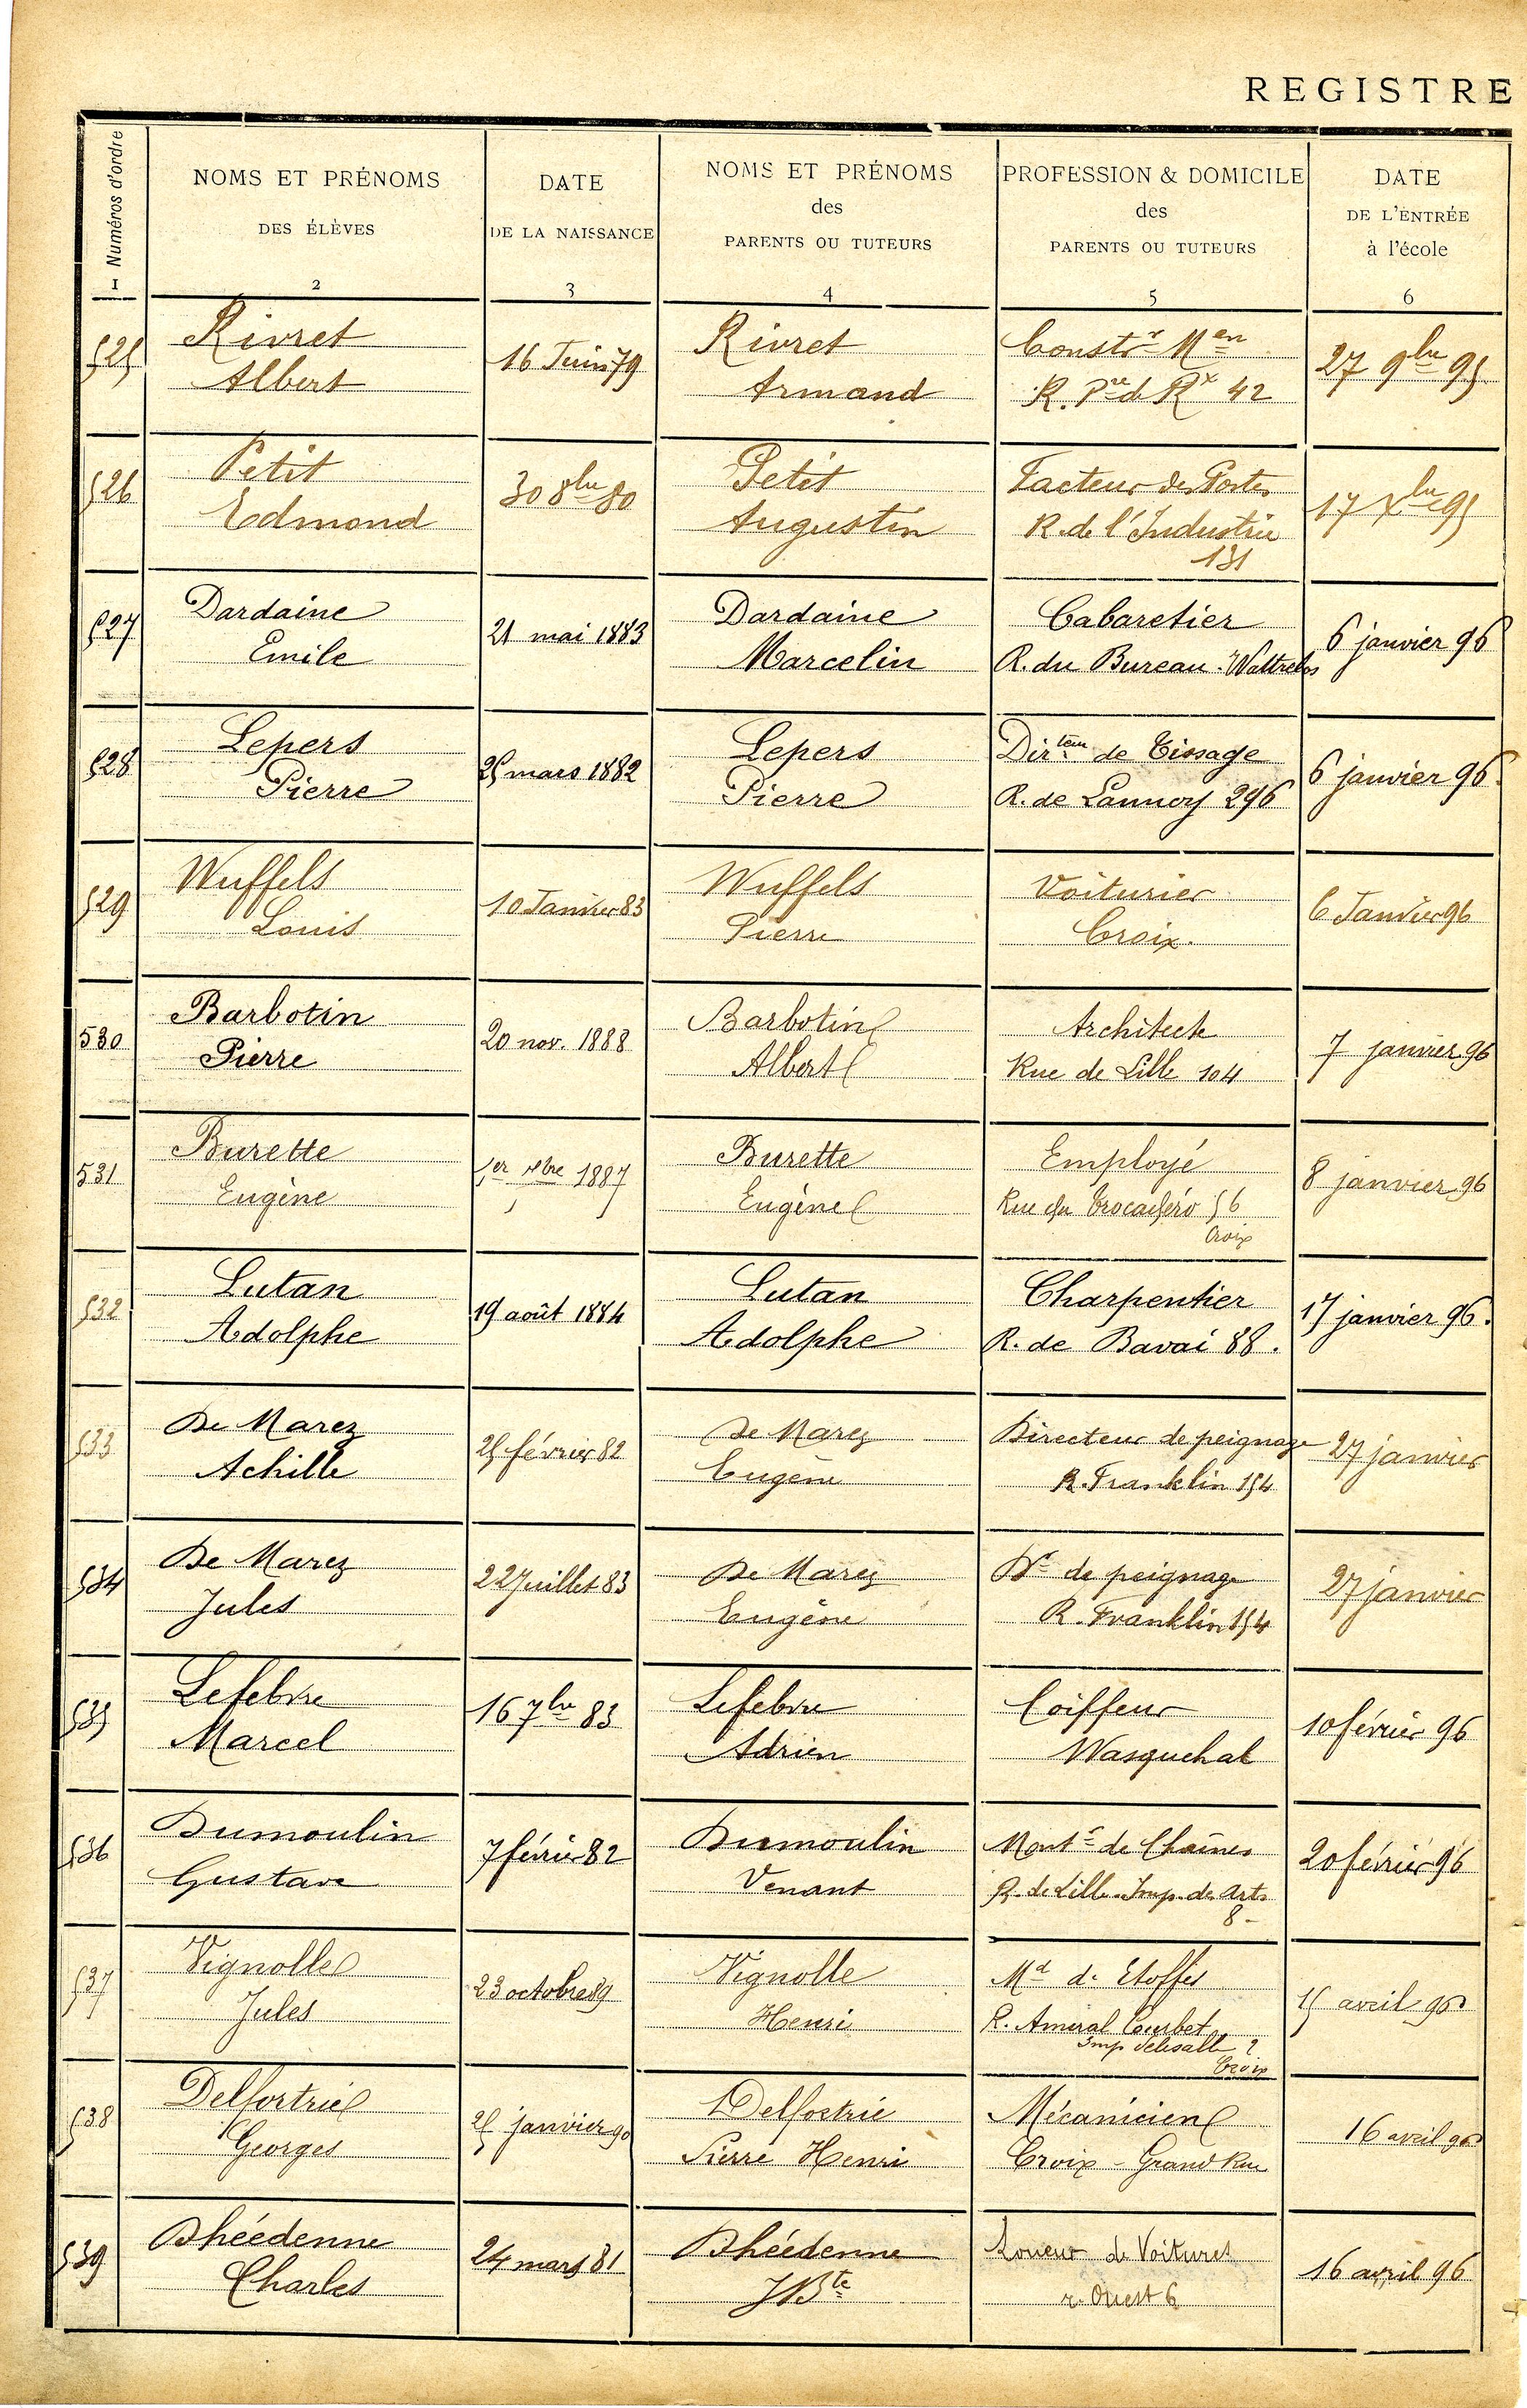 REGISTRE
1 Numéros d'ordre
NOMS ET PRÉNOMS
DES ÉLÈVES
2
DATE
DE LA NAISSANCE
3
NOMS ET PRÉNOMS
des
PARENTS OU TUTEURS
4
PROFESSION & DOMICILE
des
PARENTS OU TUTEURS
5
DATE
DE L'ENTRÉE
à l'école
6
525
Rivret
Albert
16 Juin 79
Rivret
Armand
Constr Men
R. Pre de Rx 42
27 9bre 95
526
Petit
Edmond
30 8bre 80
Petit
Augustin
Facteur des Postes
R. de l'Industrie
131
17 Xbre 95
527
Dardaine
Emile
21 mai 1883
Dardaine
Marcelin
Cabaretier
R. du Bureau. Wattrelos
6 janvier 96
528
Lepers
Pierre
25 mars 1882
Lepers
Pierre
Dirteur de Tissage
R. de Lannoy 296
6 janvier 96.
529
Wuffels
Louis
10 Janvier 83
Wuffels
Pierre
Voiturier
Croix.
6 Janvier 96
530
Barbotin
Pierre
20 nov. 1888
Barbotin
Albert
Architecte
Rue de Lille 104
7 janvier 96
531
Burette
Eugène
1er 1887
Burette
Eugène
Employé
Rue du Trocadéro 56
Croix
8 janvier 96
532
Lutan
Adolphe
19 août 1884
Lutan
Adolphe
Charpentier
R. de Bavai 88.
17 janvier 96.
533
De Marez
Achille
25 février 82
De Marez
Eugène
Directeur de peignage
R. Franklin 154
27 janvier
534
De Marez
Jules
22 Juillet 83
De Marez
Eugène
Dr de peignage
R. Franklin 154
27 janvier
535
Lefebvre
Marcel
16 7bre 83
Lefebvre
Adrien
Coiffeur
Wasquehal
10 février 96
536
Dumoulin
Gustave
7 février 82
Dumoulin
Venant
Montr de Chaînes
R. de Lille. Imp. des Arts
8-
20 février 96
537
Vignolle
Jules
23 octobre 89
Vignolle
Henri
Md de Etoffes
R. Amiral Courbet
Imp Delesalle 2
Croix
15 avril 96
538
Delfortrie
Georges
25 janvier 90
Delfortrie
Pierre Henri
Mécanicien
Croix - Grand Rue
16 avril 96
539
Dhéedenne
Charles
24 mars 81
Dhéedenne
JBte
Loueur de Voitures
r. Ouest 6
16 avril 96